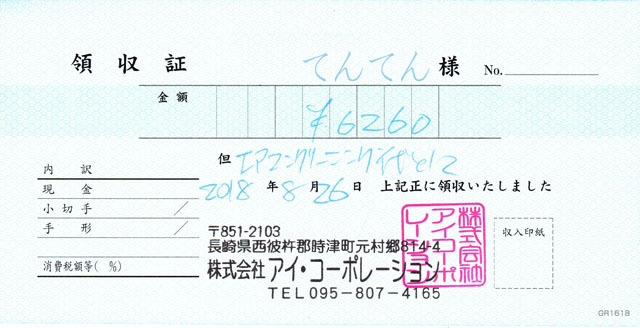 領収証 てんてん 様 No.
金額 ¥6260
但 エアコンクリーニング代として
内訳
2018年8月26日 上記正に領収いたしました
現金
小切手 /
手形 /
消費税額等( %)
〒851-2103
長崎県西彼杵郡時津町元村郷814-4
株式会社 アイ・コーポレーション
TEL 095-807-4165
株式会社
アイコーポ
レーション
収入印紙
GR1618